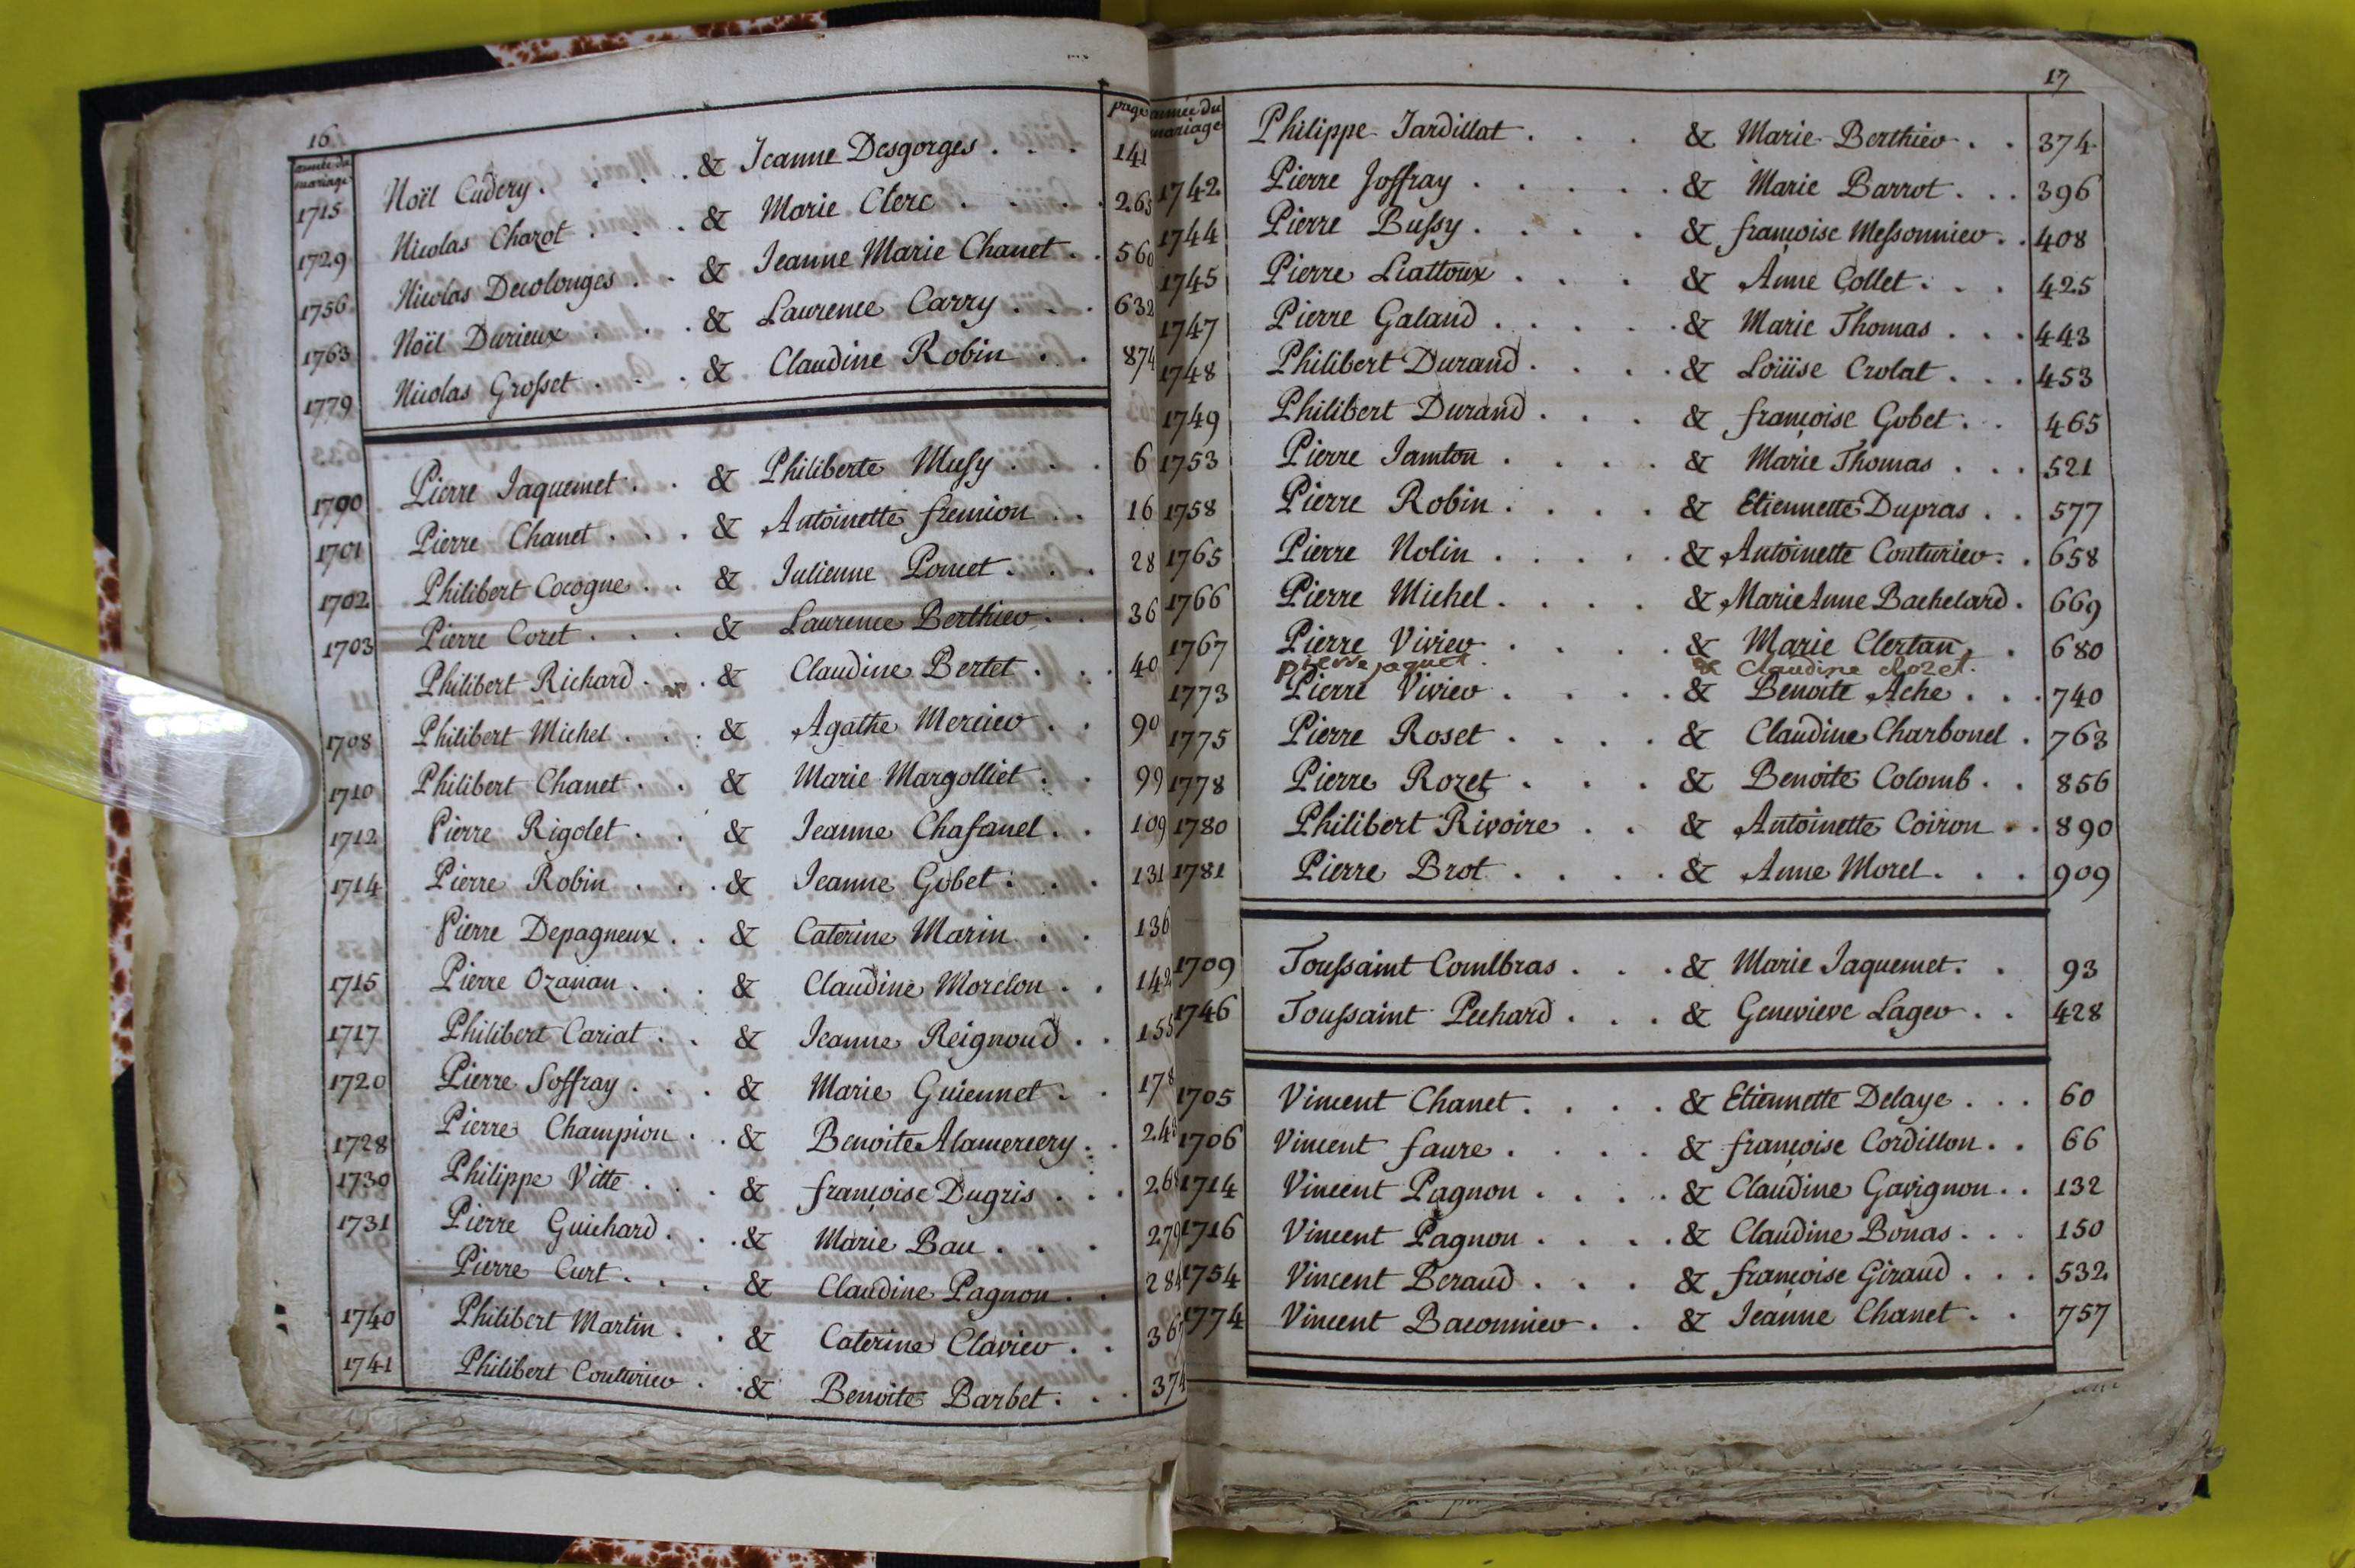 16
année du mariage
page
1715 Noël Cudery. . . . . & Jeanne Desgorges . . . 141
1729 Nicolas Charot . . . . & Marie Clerc . . . . 263
1756 Nicolas Decolonges . . & Jeanne Marie Chanet . . 560
1763 Noël Durieux . . . . & Laurence Carry . . . 632
1779 Nicolas Grosset . . . . & Claudine Robin . . 874
1790 Pierre Jaquemet . . & Philiberte Musy . . . 6
1701 Pierre Chanet . . . & Antoinette fremion . . 16
1702 Philibert Cocogne . . & Julienne Pomet . . . 28
1703 Pierre Coret . . . & Laurence Berthier . . 36
Philibert Richard . . . & Claudine Bertet . . . 40
1708 Philibert Michel . . . & Agathe Mercier . . 90
1710 Philibert Chanet . . & Marie Margolliet . . 99
1712 Pierre Rigolet . . & Jeanne Chasanel . . 109
1714 Pierre Robin . . . & Jeanne Gobet . . . 131
Pierre Depagneux . . & Caterine Marin . . 136
1715 Pierre Ozanan . . . & Claudine Morelon . . 142
1717 Philibert Cariat . . & Jeanne Reignoud . . 155
1720 Pierre Soffray . . . & Marie Guiennet . . 178
1728 Pierre Champion . . & Benoite Alamercery . . 248
1730 Philippe Vitte . . . & françoise Dugris . . . 268
1731 Pierre Guichard . . . & Marie Bau . . . 279
Pierre Curt . . . & Claudine Pagnon . . 284
1740 Philibert Martin . . & Caterine Clavier . . 367
1741 Philibert Couturier . . & Benoite Barbet . . . 374
17
année du mariage
Philippe Jardillat . . . & Marie Berthier . . 374
1742 Pierre Joffray . . . . . & Marie Barrot . . . 396
1744 Pierre Bussy . . . . & françoise Messonnier . . 408
1745 Pierre Liattoux . . . & Anne Collet . . . 425
1747 Pierre Galand . . . . . & Marie Thomas . . . 443
1748 Philibert Durand . . . . & Loüise Crolat . . . 453
1749 Philibert Durand . . . & françoise Gobet . . 465
1753 Pierre Jamton . . . . & Marie Thomas . . . 521
1758 Pierre Robin . . . . & Etiennette Dupras . . 577
1765 Pierre Nolin . . . . . & Antoinette Couturier . . 658
1766 Pierre Michel . . . . & Marie Anne Bachelard . 669
1767 Pierre Vivier . . . . . & Marie Clertan . . 680
pierre jaquet . & Claudine Rozet .
1773 Pierre Vivier . . . . & Benoite Ache . . . 740
1775 Pierre Roset . . . . & Claudine Charbonel . 763
1778 Pierre Rozet . . . & Benoite Colomb . . 856
1780 Philibert Rivoire . . & Antoinette Coiron . . 890
1781 Pierre Brot . . . . & Anne Morel . . . 909
1709 Toussaint Comlbras . . . & Marie Jaquemet . . 93
1746 Toussaint Pechard . . . & Genevieve Lager . . 428
1705 Vincent Chanet . . . . & Etiennette Delaye . . . 60
1706 Vincent faure . . . . & françoise Cordillon . . 66
1714 Vincent Pagnon . . . . & Claudine Gavignon . . 132
1716 Vincent Pagnon . . . . & Claudine Bonas . . . 150
1754 Vincent Beraud . . . & françoise Giraud . . . 532
1774 Vincent Baconnier . . & Jeanne Chanet . . 757